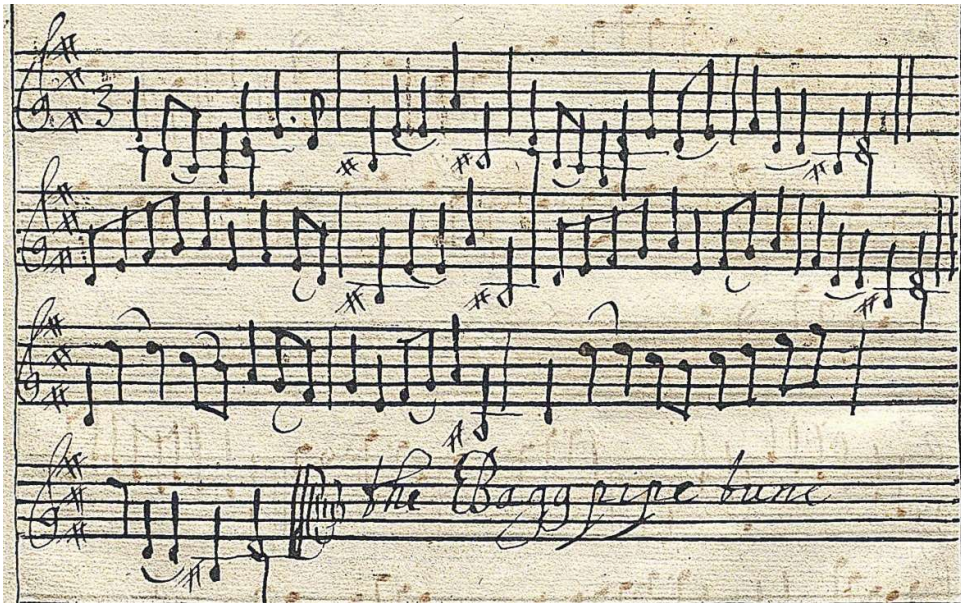 3
the Bagg pipe tune